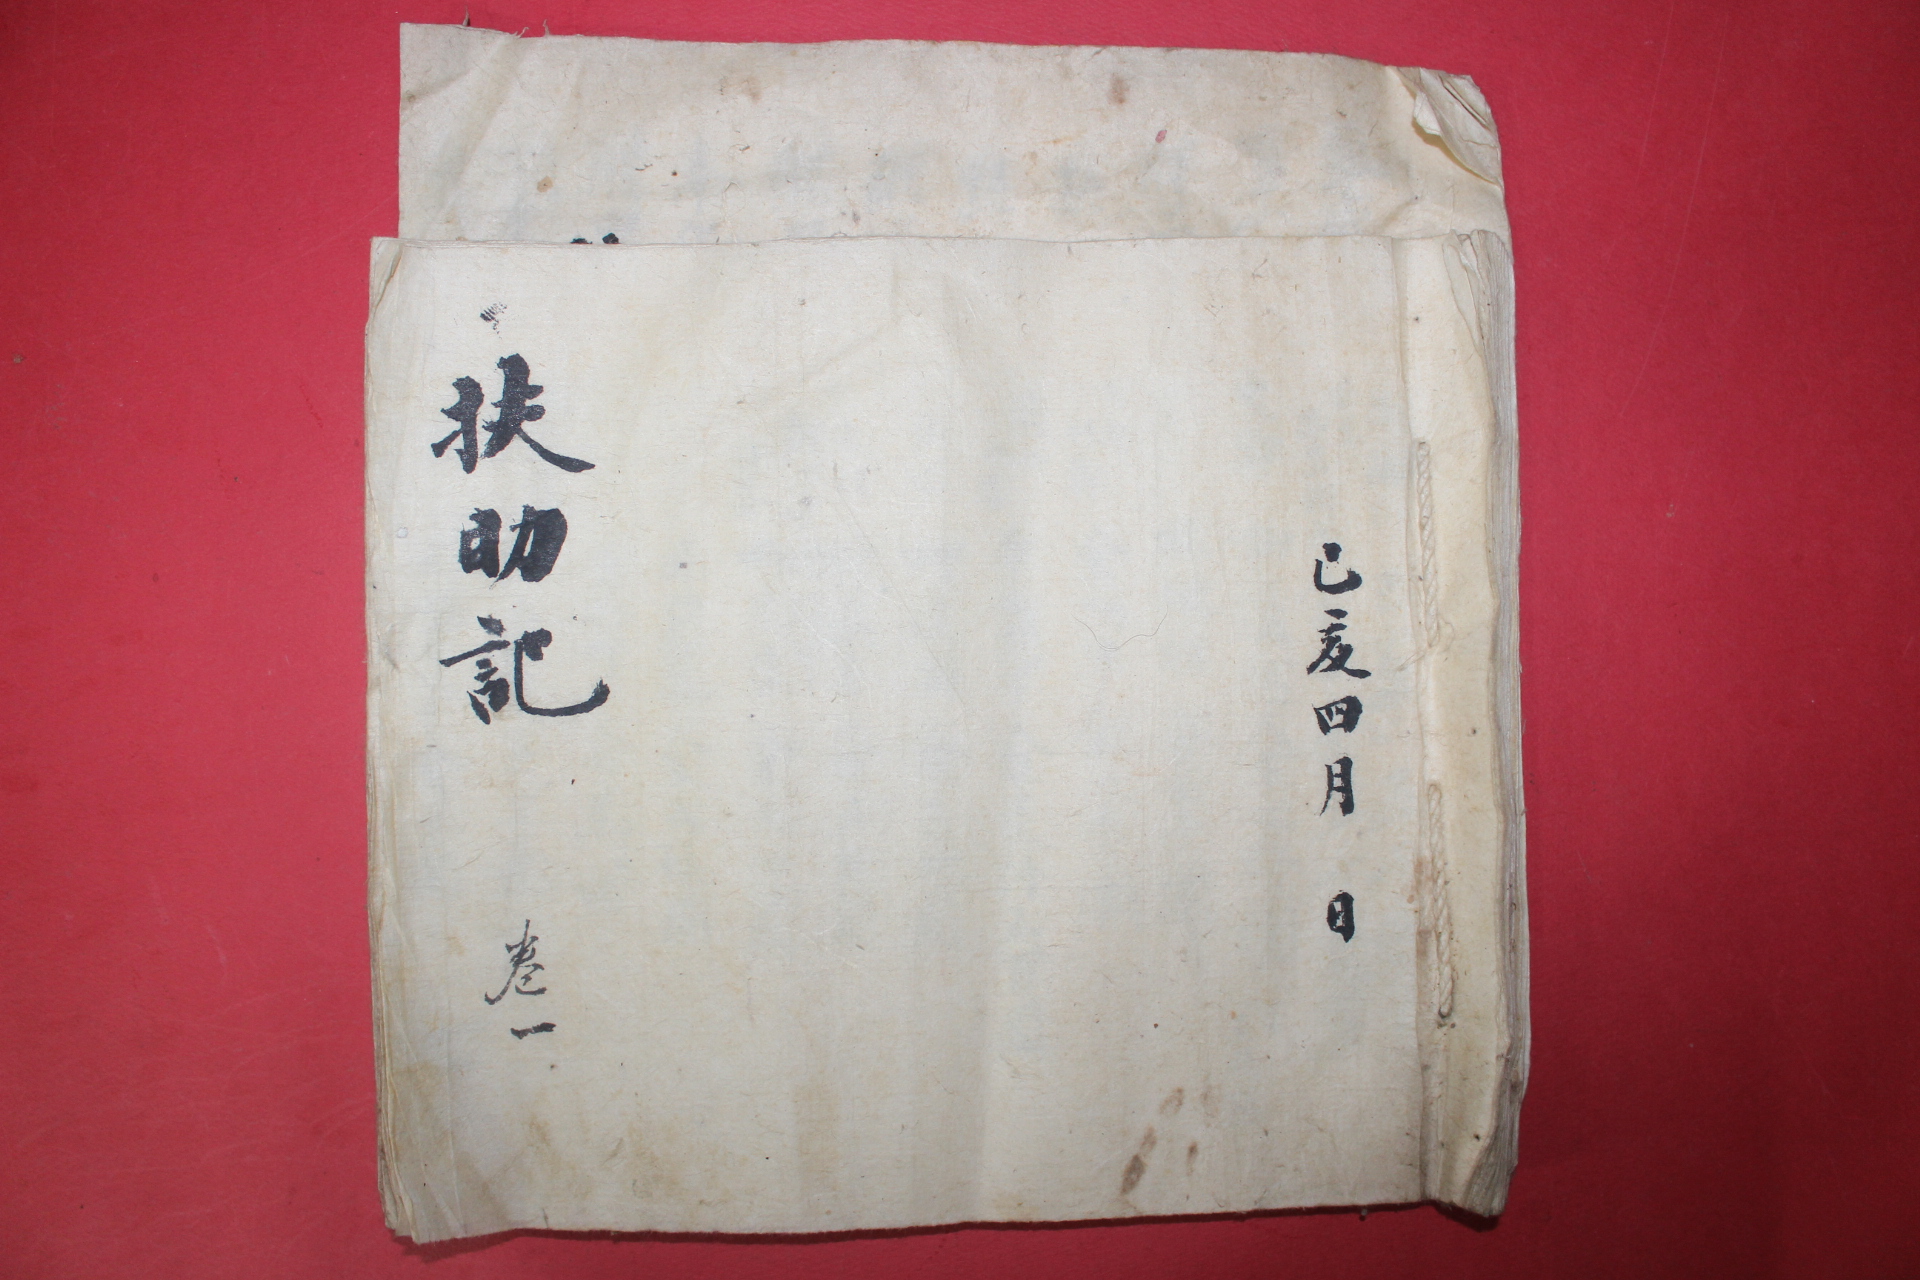 己亥四月 日
扶助記 卷一